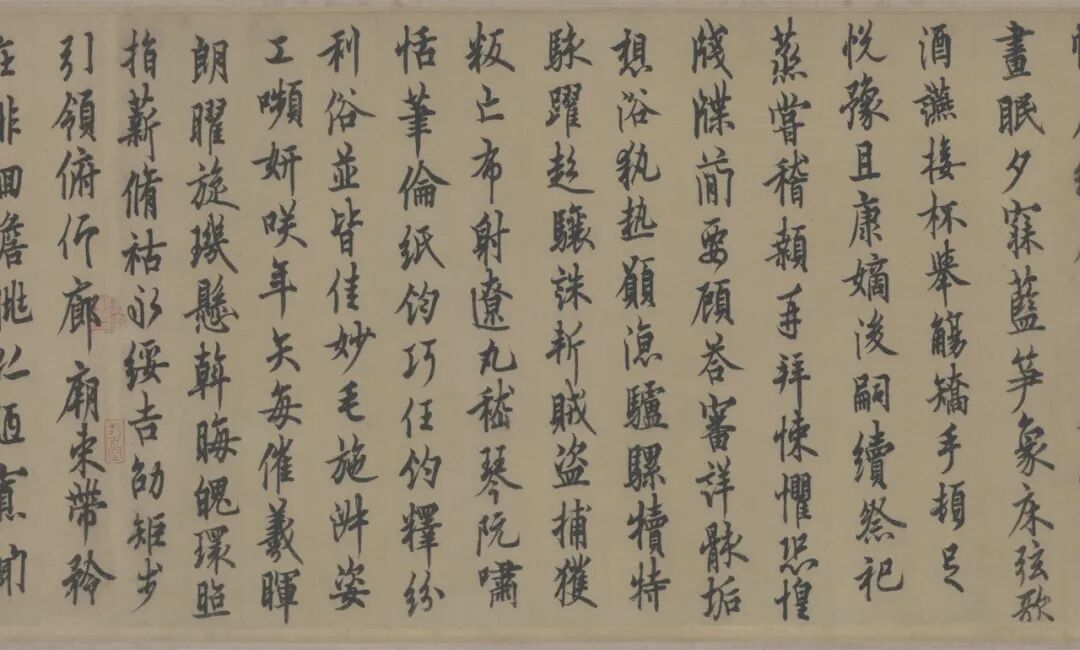 晝眠夕寐藍笋象床弦歌
酒讌接杯舉觴矯手頓足
悦豫且康嫡後嗣續祭祀
蒸嘗稽顙再拜悚懼恐惶
牋牒簡要顧答審詳骸垢
想浴執熱願涼驢騾犢特
駭躍超驤誅斬賊盜捕獲
叛亡布射遼丸嵇琴阮嘯
恬筆倫紙鈞巧任釣釋紛
利俗並皆佳妙毛施淑姿
工嚬妍咲年矢每催羲暉
朗曜旋璣懸斡晦魄環照
指薪脩祜永綏吉劭矩步
引領俯仰廊廟束帶矜
莊徘徊瞻眺孤陋寡聞